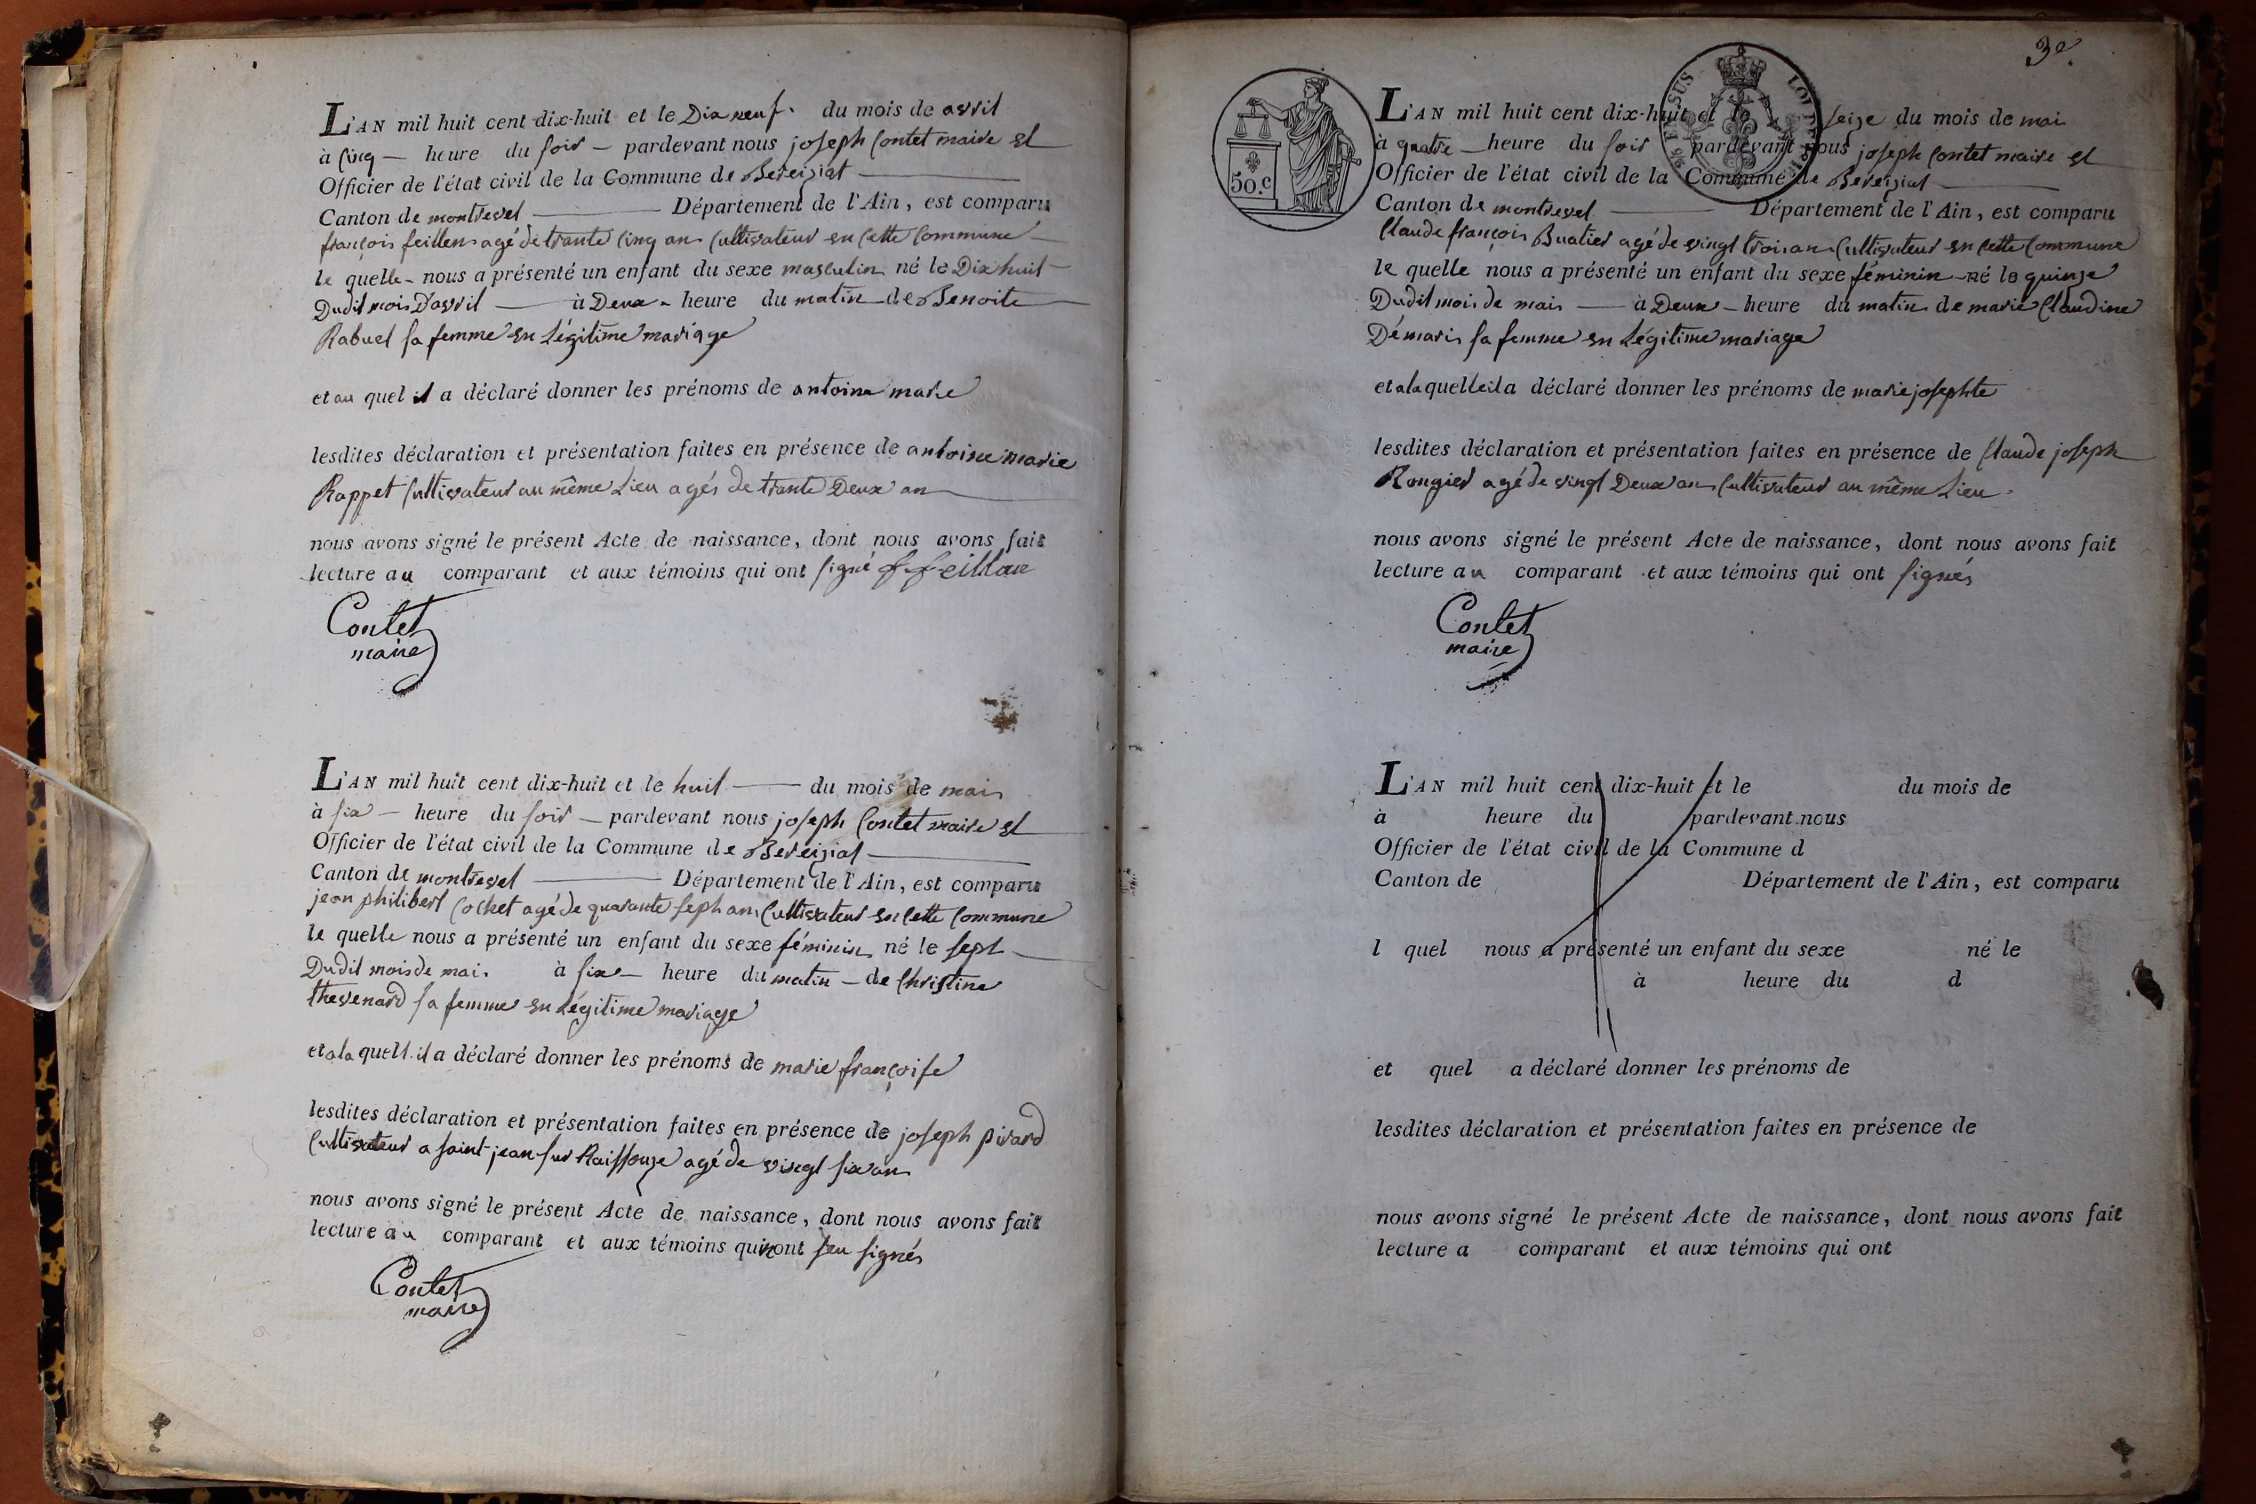 L'AN mil huit cent dix-huit et le Dix neuf du mois de avril
à Cinq — heure du soir — pardevant nous joseph Contet maire et
Officier de l'état civil de la Commune de Bereiziat
Canton de montrevel Département de l'Ain, est comparu
françois feillens agé de trante Cinq ans Cultivateur en Cette Commune
le quelle nous a présenté un enfant du sexe masculin né le Dix huit
Dudit mois D'avril à Deux heure du matin de Benoite
Rabuel sa femme en Légitime mariage
et au quel il a déclaré donner les prénoms de antoine marie
lesdites déclaration et présentation faites en présence de antoine marie
Rappet Cultivateur au même Lieu agés de trante Deux an
nous avons signé le présent Acte de naissance, dont nous avons fait
lecture au comparant et aux témoins qui ont signé
Contet
maire
L'AN mil huit cent dix-huit et le huit du mois de mai
à six — heure du soir — pardevant nous joseph Contet maire et
Officier de l'état civil de la Commune de Bereiziat
Canton de montrevel Département de l'Ain, est comparu
jean philibert Cochet agé de quarante sept ans Cultivateur en Cette Commune
le quelle nous a présenté un enfant du sexe féminin né le sept
Dudit mois de mai à six heure du matin — de Christine
thevenard sa femme en Légitime mariage
et a la quell il a déclaré donner les prénoms de marie françoise
lesdites déclaration et présentation faites en présence de joseph pirard
Cultivateur a saint jean sur Raissouze agé de vingt six an
nous avons signé le présent Acte de naissance, dont nous avons fait
lecture au comparant et aux témoins qui n'ont seu signés
Contet
maire
3e.
50.c
L'AN mil huit cent dix-huit et le seize du mois de mai
à quatre — heure du soir pardevant nous joseph Contet maire et
Officier de l'état civil de la Commune de Bereiziat
Canton de montrevel Département de l'Ain, est comparu
Claude françois Buatier agé de vingt trois an Cultivateur en Cette Commune
le quelle nous a présenté un enfant du sexe féminin né le quinze
Dudit mois de mai — à Deux — heure du matin de marie Claudine
Démaris sa femme en Légitime mariage
et a la quelle il a déclaré donner les prénoms de marie josephte
lesdites déclaration et présentation faites en présence de Claude joseph
Rongier agé de vingt Deux an Cultivateur au même Lieu
nous avons signé le présent Acte de naissance, dont nous avons fait
lecture au comparant et aux témoins qui ont signés
Contet
maire
L'AN mil huit cent dix-huit et le du mois de
à heure du pardevant nous
Officier de l'état civil de la Commune d
Canton de Département de l'Ain, est comparu
l quel nous a présenté un enfant du sexe né le
à heure du d
et quel a déclaré donner les prénoms de
lesdites déclaration et présentation faites en présence de
nous avons signé le présent Acte de naissance, dont nous avons fait
lecture a comparant et aux témoins qui ont